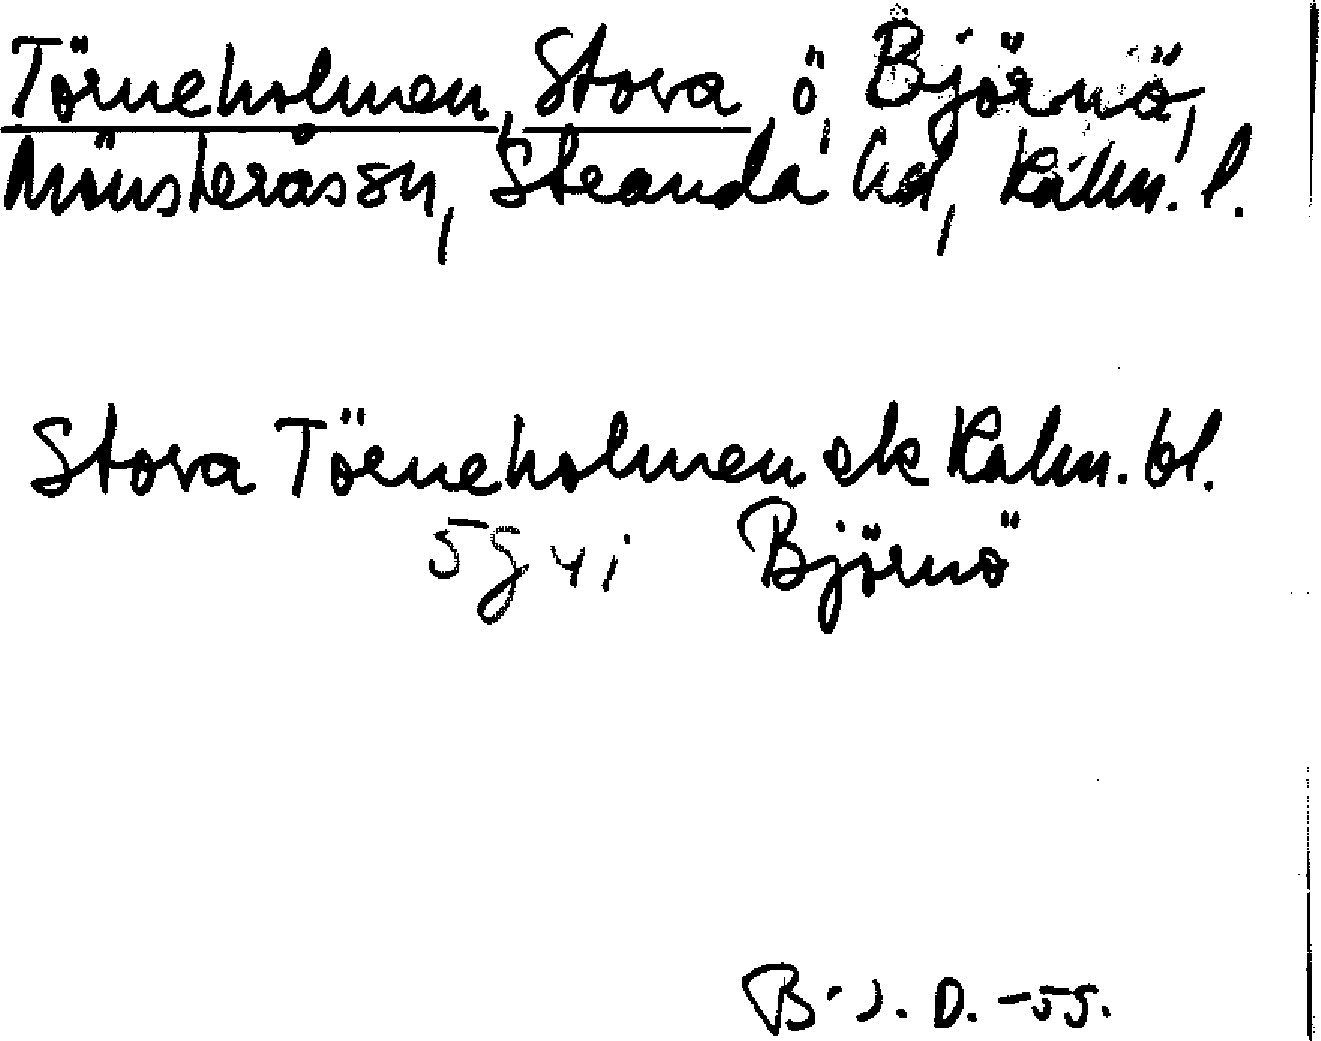 Törneholmen, Stora, ö, Björnö,
Mönsterås sn, Stranda hd, Kalm. l.
Stora Törneholmen ek Kalm. bl.
5g 4i Björnö
B-J. D. -55.